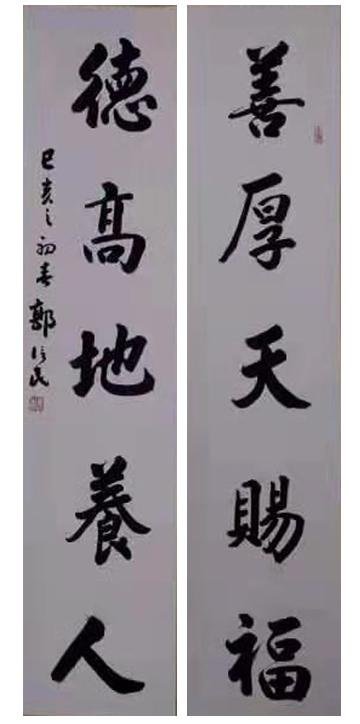 善厚天賜福
德高地養人
己亥之初春郭信民